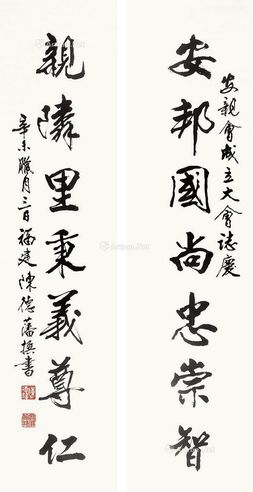 安親會成立大會誌慶
安邦國尚忠崇智
親隣里秉義尊仁
辛未臘月三日福建陳德藩撰書